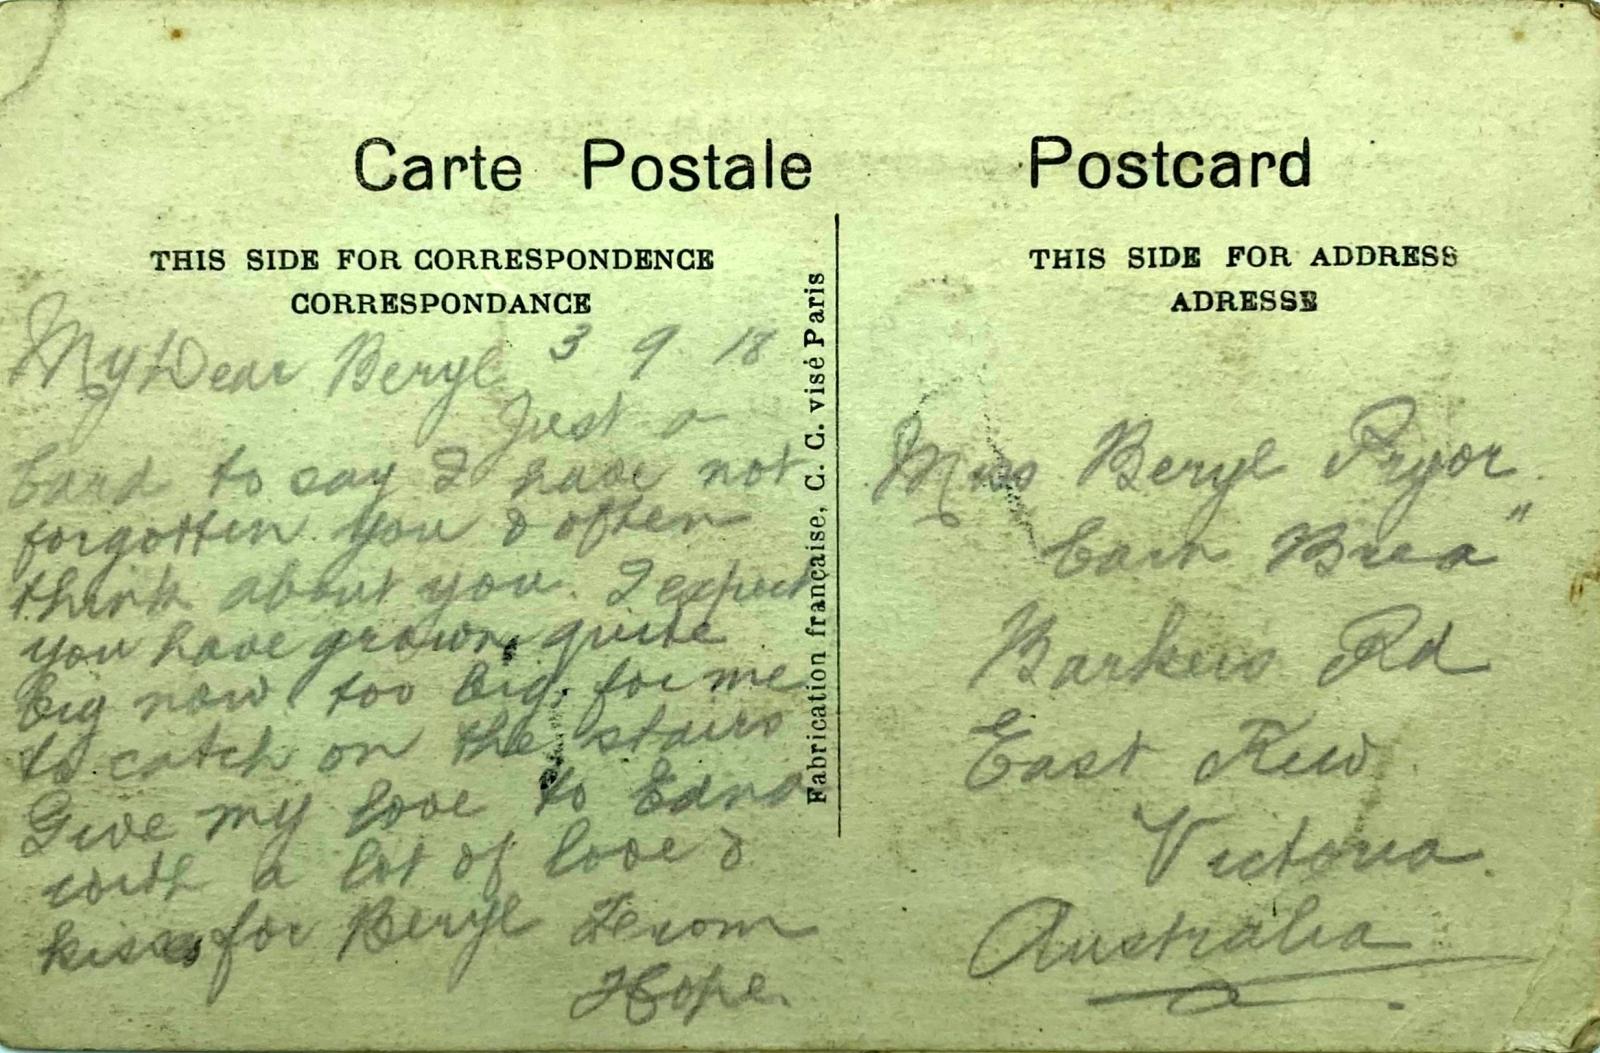 Carte Postale
Postcard
THIS SIDE FOR CORRESPONDENCE
CORRESPONDANCE
THIS SIDE FOR ADDRESS
ADRESSE
My Dear Beryl 3 9 18
Just a
Card to say I have not
forgotten you & often
think about you. I expect
you have grown quite
big now too big for me
to catch on the stairs
Give my love to Edna
with a lot of love &
kisses for Beryl From
Hope.
Fabrication française, C. C. visé Paris
Miss Beryl Pryor
Carn Brea"
Barkers Rd
East Kew
Victoria.
Australia